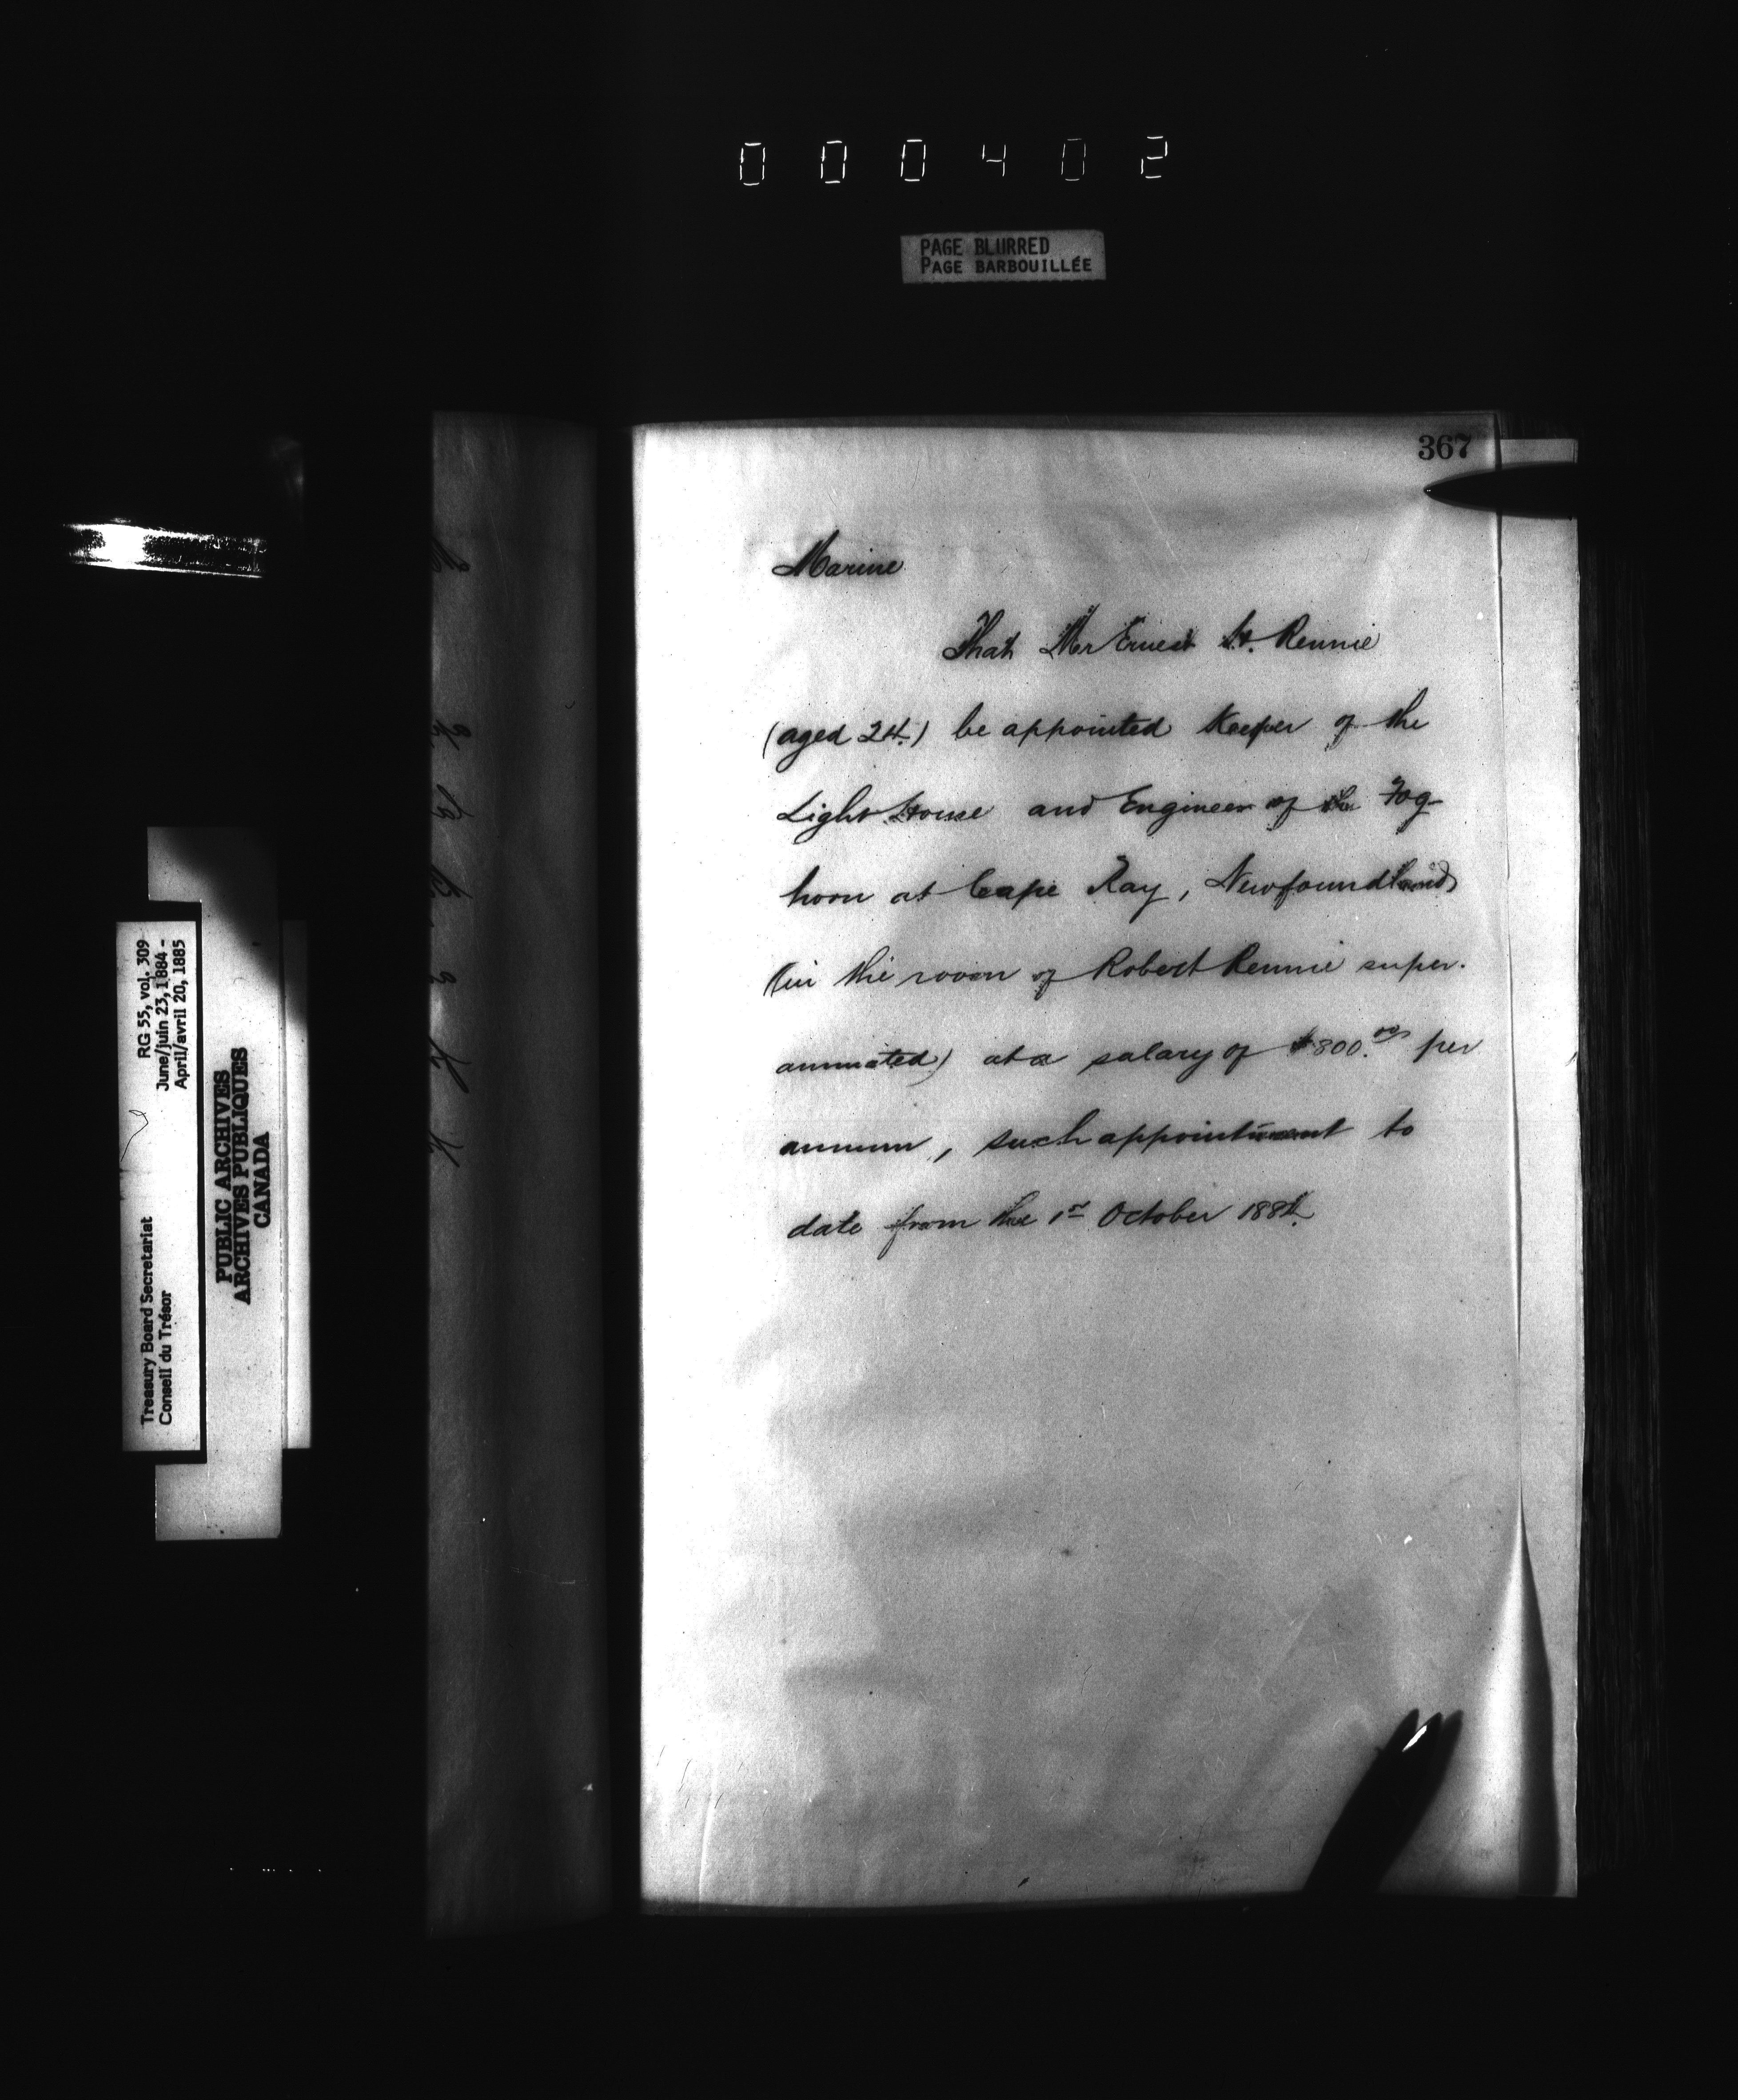 000402
PAGE BLURRED
PAGE BARBOUILLÉE
367
Marine
That Mr Ernest H. Rennie
(aged 24.) be appointed Keeper of the
Light House and Engineer of the Fog
horn at Cape Ray, Newfoundland
(in the room of Robert Rennie super-
annuated) at a salary of $800.00 per
annum, such appointment to
date from the 1st October 1884.
RG 55, vol. 309
June/juin 23, 1884 -
April/avril 20, 1885
Treasury Board Secretariat
Conseil du Trésor
PUBLIC ARCHIVES
ARCHIVES PUBLIQUES
CANADA